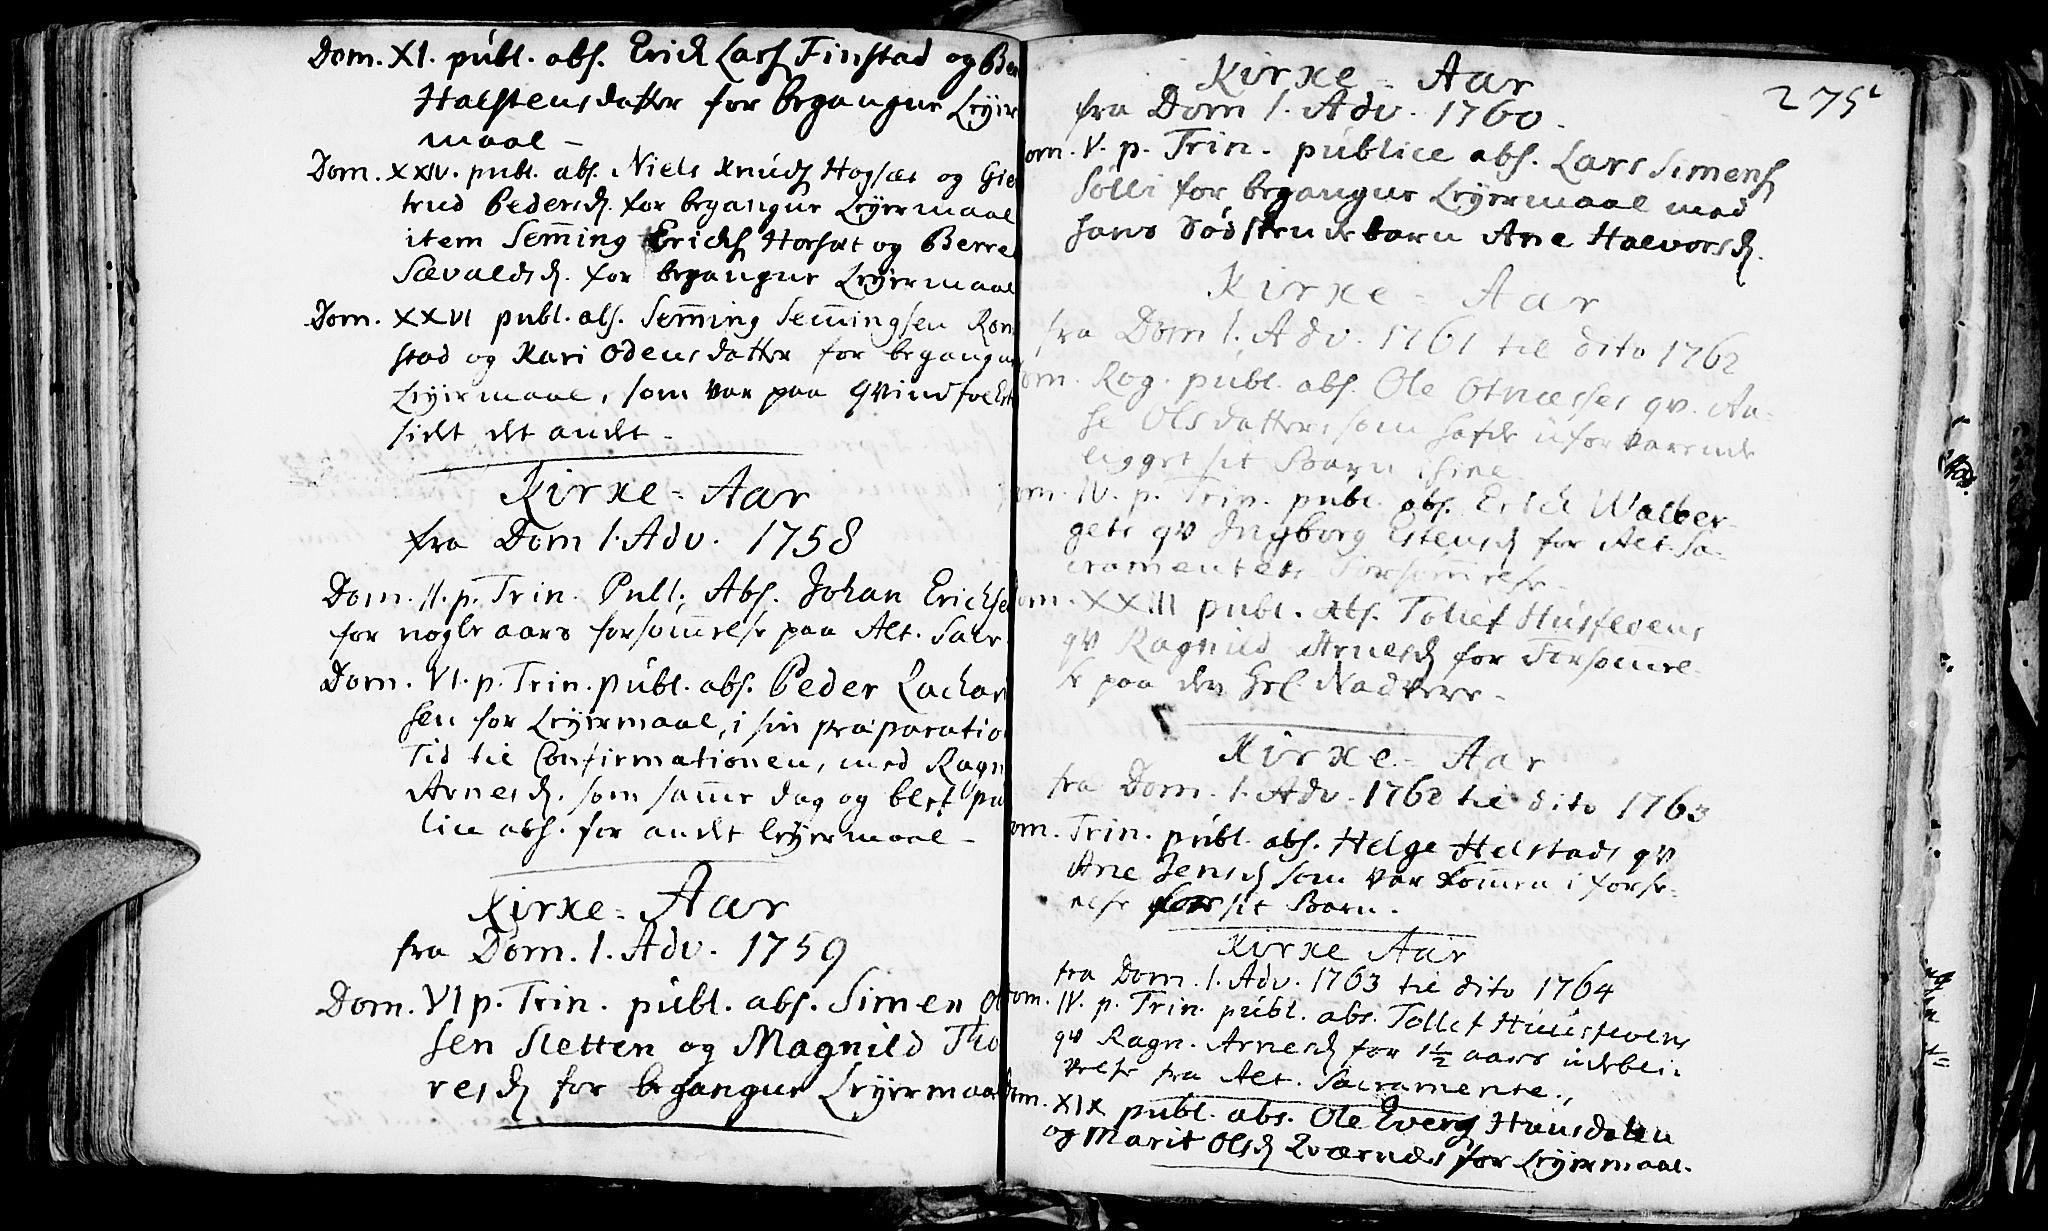 Dom. XI. públ. abs. Erich Lars. Finstad og Ber
Halstensdatter for begangne Leyer
maal –
Dom. XXIV. publ. abs. Niels Knúds. Hogsæt og Gier
trud Pedersd. for begangne Leyermaal
item Sem̄ing Erichs. Horsæt og Berre
Sævaldsd. for begangne Leyermaal
Dom. XXVI publ. abs. Sem̄ing Sem̄ingsen Ron
stad og Kari Odensdatter for begangne
Leyermaal, som var paa Qvindfolkets
sidt det andet –
Kirke-Aar
fra Dom 1. Adv. 1758
Dom. II. p. Trin. Publ. Abs. Johan Erichse
for nogle aars forsøm̄else paa Alt. Sacr
Dom. VI. p. Trin. públ. abs. Peder Zachari
sen for Leyermaal, i sin præparatio
Tid til Confirmationen, med Ragn
Arnesd. som sam̄e dag og blef pu
lice abs. for andet Leyermaal –
Kirke-Aar
fra Dom. 1. Adv. 1759
Dom. VI p. Trin. públ. abs. Simen Ol
sen Sletten og Magnild Tho
resd. for begangne Leyermaal
275
Kirke-Aar
fra Dom 1. Adv. 1760.
Dom. V. p. Trin. públice abs. Lars Simens.
Solli for begangne Leyermaal med
hans Sødskendebarn Ane Halvorsd.
Kirke-Aar
fra Dom 1. Adv. 1761 til dito 1762
Dom. Rog. públ. abs. Ole Otnæsses qv. Aa-
se Olsdatter, som hafde uforvarende
ligget sit Barn ihiel
Dom. IV. p. Trin. públ. abs. Erich Walber-
gets qv Ingborg Estensd. for Alt. Sa-
cramentets Forsøm̄else –
Dom. XXIII publ. abs. Tollef Húsfloens
qv Ragnild Arnesd. for Forsøm̄el-
se paa den Hel. Nadvere –
Kirke-Aar
fra Dom. 1. Adv. 1762 til dito 1763
Dom. Trin. públ. abs. Helge Helstads qv
Ane Jensd. som var kom̄en i forse-
else for sit Barn.
Kirke Aar
fra Dom. 1. Adv. 1763 til dito 1764
Dom. IV. p. Trin. públ. abs. Tollef Húúsfloens
qv Ragn. Arnesd. for 1½ aars udebli-
velse fra Alt. Sacramente.
Dom. XIX publ. abs. Ole Hansdalen
og Marit Olsd. Qværnæs for Leyermaal.